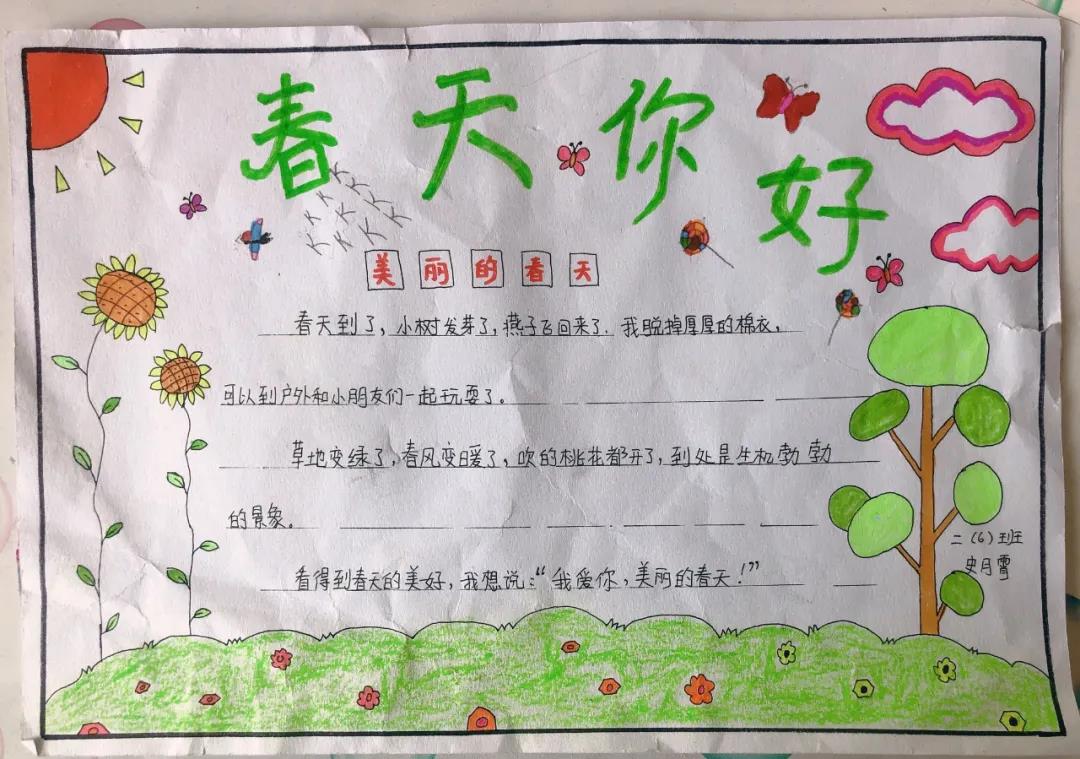 春天你好
美丽的春天
春天到了、小树发芽了，燕子飞回来了．我脱掉厚厚的棉衣，
可以到户外和小朋友们一起玩耍了。
草地变绿了，春风变暖了，吹的桃花都开了，到处是生机勃勃
的景象。
看得到春天的美好，我想说：“我爱你，美丽的春天！”
二（6）班
史月霄